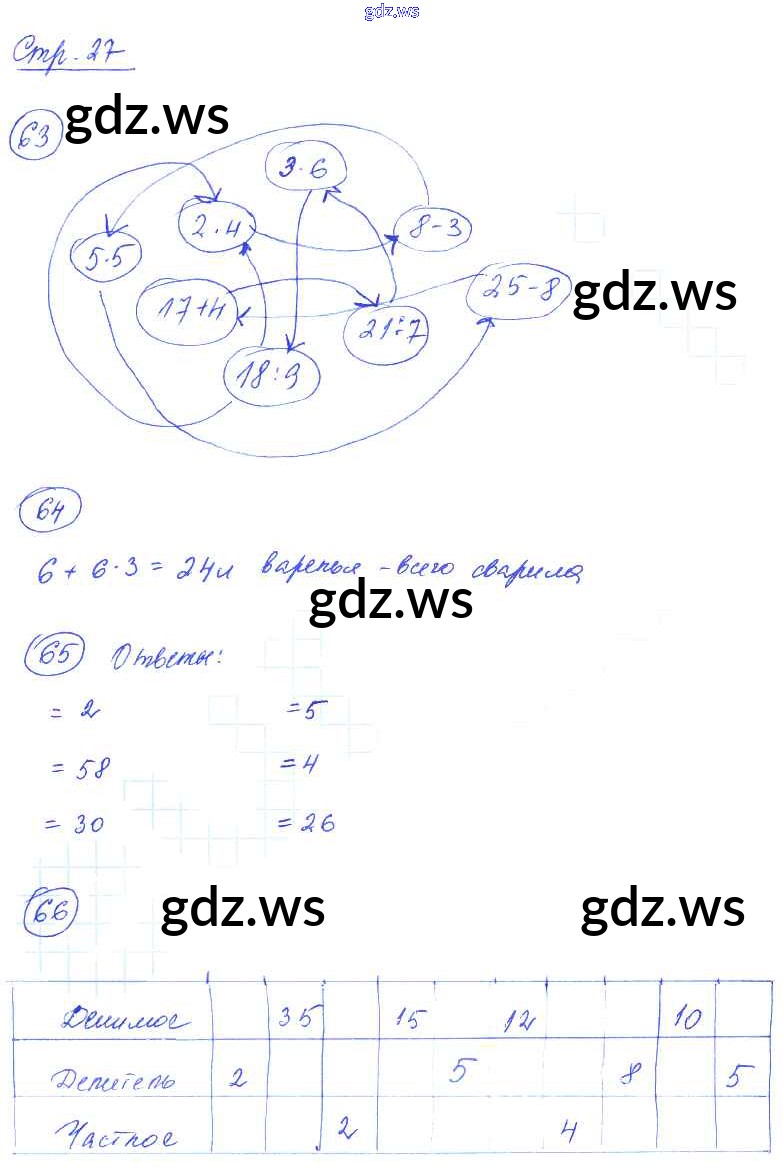 gdz.ws
Стр. 27
63 gdz.ws
3·6
2·4 8-3
5·5
25-8 gdz.ws
17+4 21:7
18:9
64
6 + 6·3 = 24л варенья - всего сварила
gdz.ws
65 Ответы:
= 2 = 5
= 58 = 4
= 30 = 26
66 gdz.ws gdz.ws
Делимое 35 15 12 10
Делитель 2 5 8 5
Частное 2 4